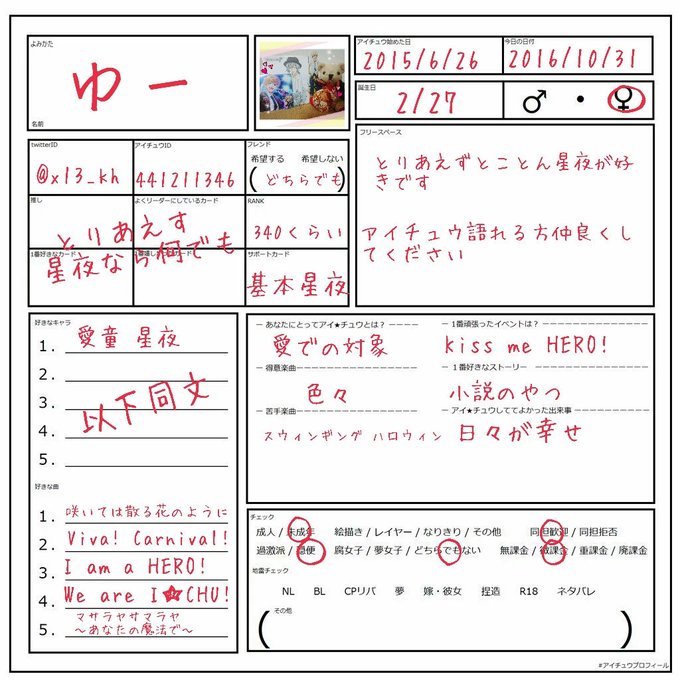 よみかた
ゆー
名前
アイチュウ始めた日
2015/6/26
今日の日付
2016/10/31
誕生日
2/27
♂ ・ ♀
twitterID
@x13_kh
アイチュウID
441211346
フレンド
希望する 希望しない
(どちらでも)
推し
よくリーダーにしているカード
RANK
340くらい
とりあえす
星夜なら何でも
1番好きなカード
サポートカード
基本星夜
フリースペース
とりあえずとことん星夜が好
きです
アイチュウ語れる方仲良くし
てください
好きなキャラ
1. 愛童 星夜
2.
3. 以下同文
4.
5.
好きな曲
1. 咲いては散る花のように
2. Viva! Carnival!
3. I am a HERO!
4. We are I★CHU!
5. マサラヤサマラヤ
〜あなたの魔法で〜
あなたにとってアイ★チュウとは?
愛での対象
得意楽曲
色々
苦手楽曲
スウィンギング ハロウィン
1番頑張ったイベントは?
kiss me HERO!
1番好きなストーリー
小説のやつ
アイ★チュウしててよかった出来事
日々が幸せ
チェック
成人 / 未成年 絵描き / レイヤー / なりきり / その他 同担歓迎 / 同担拒否
過激派 / 穏便 腐女子 / 夢女子 / どちらでもない 無課金 / 微課金 / 重課金 / 廃課金
地雷チェック
NL BL CPリバ 夢 嫁・彼女 捏造 R18 ネタバレ
その他
#アイチュウプロフィール